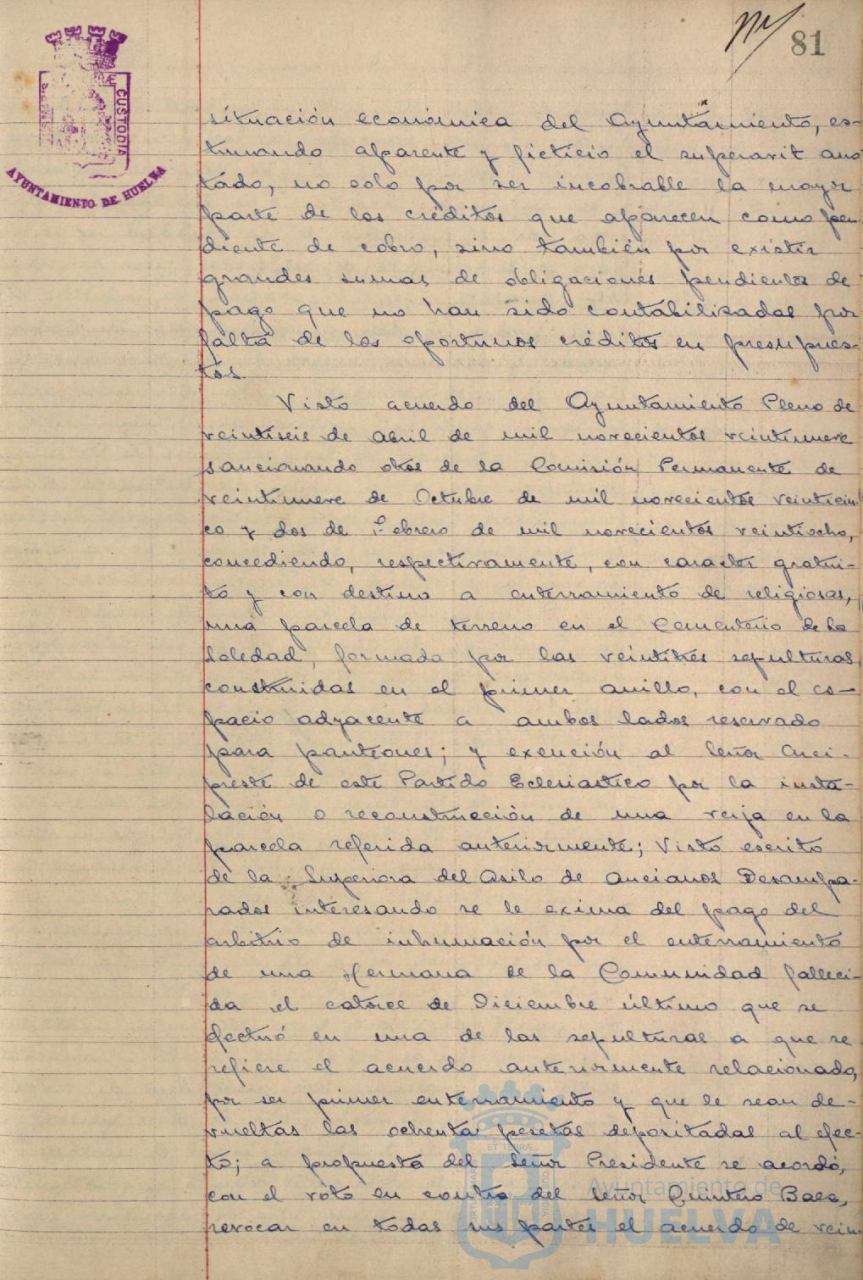 81
CUSTODIA
AYUNTAMIENTO DE HUELVA
situación económica del Ayuntamiento, es-
timando aparente y ficticio el superavit ano
tado, no solo por ser incobrable la mayor
parte de los créditos que aparecen como pen
diente de cobro, sino también por existir
grandes sumas de obligaciones pendientes de
pago que no han sido contabilizadas por
falta de los oportunos créditos en presupues-
tos.
Visto acuerdo del Ayuntamiento Pleno de
veintiseis de abril de mil novecientos veintinueve
sancionando otros de la Comisión Permanente de
veintinueve de Octubre de mil novecientos veinticin-
co y dos de Febrero de mil novecientos veintiocho,
concediendo, respectivamente, con caracter gratui-
to y con destino a enterramiento de religiosas,
una parcela de terreno en el Cementerio de la
Soledad, formada por las veintitres sepulturas
construidas en el primer anillo, con el es-
pacio adyacente a ambos lados reservado
para panteones; y exención al Señor Arci-
preste de este Partido Eclesiastico por la insta-
lación o reconstrucción de una verja en la
parcela referida anteriormente; Visto escrito
de la Superiora del Asilo de Ancianos Desampa-
rados interesando se le exima del pago del
arbitrio de inhumación por el enterramiento
de una Hermana de la Comunidad falleci-
da el catorce de Diciembre último que se
efectuó en una de las sepulturas a que se
refiere el acuerdo anteriormente relacionado,
por ser primer enterramiento y que le sean de-
vueltas las ochenta pesetas depositadas al efec-
to; a propuesta del Señor Presidente se acordó,
con el voto en contra del Señor Quintero Baez,
revocar en todas sus partes el acuerdo de vein
Ayuntamiento de
HUELVA